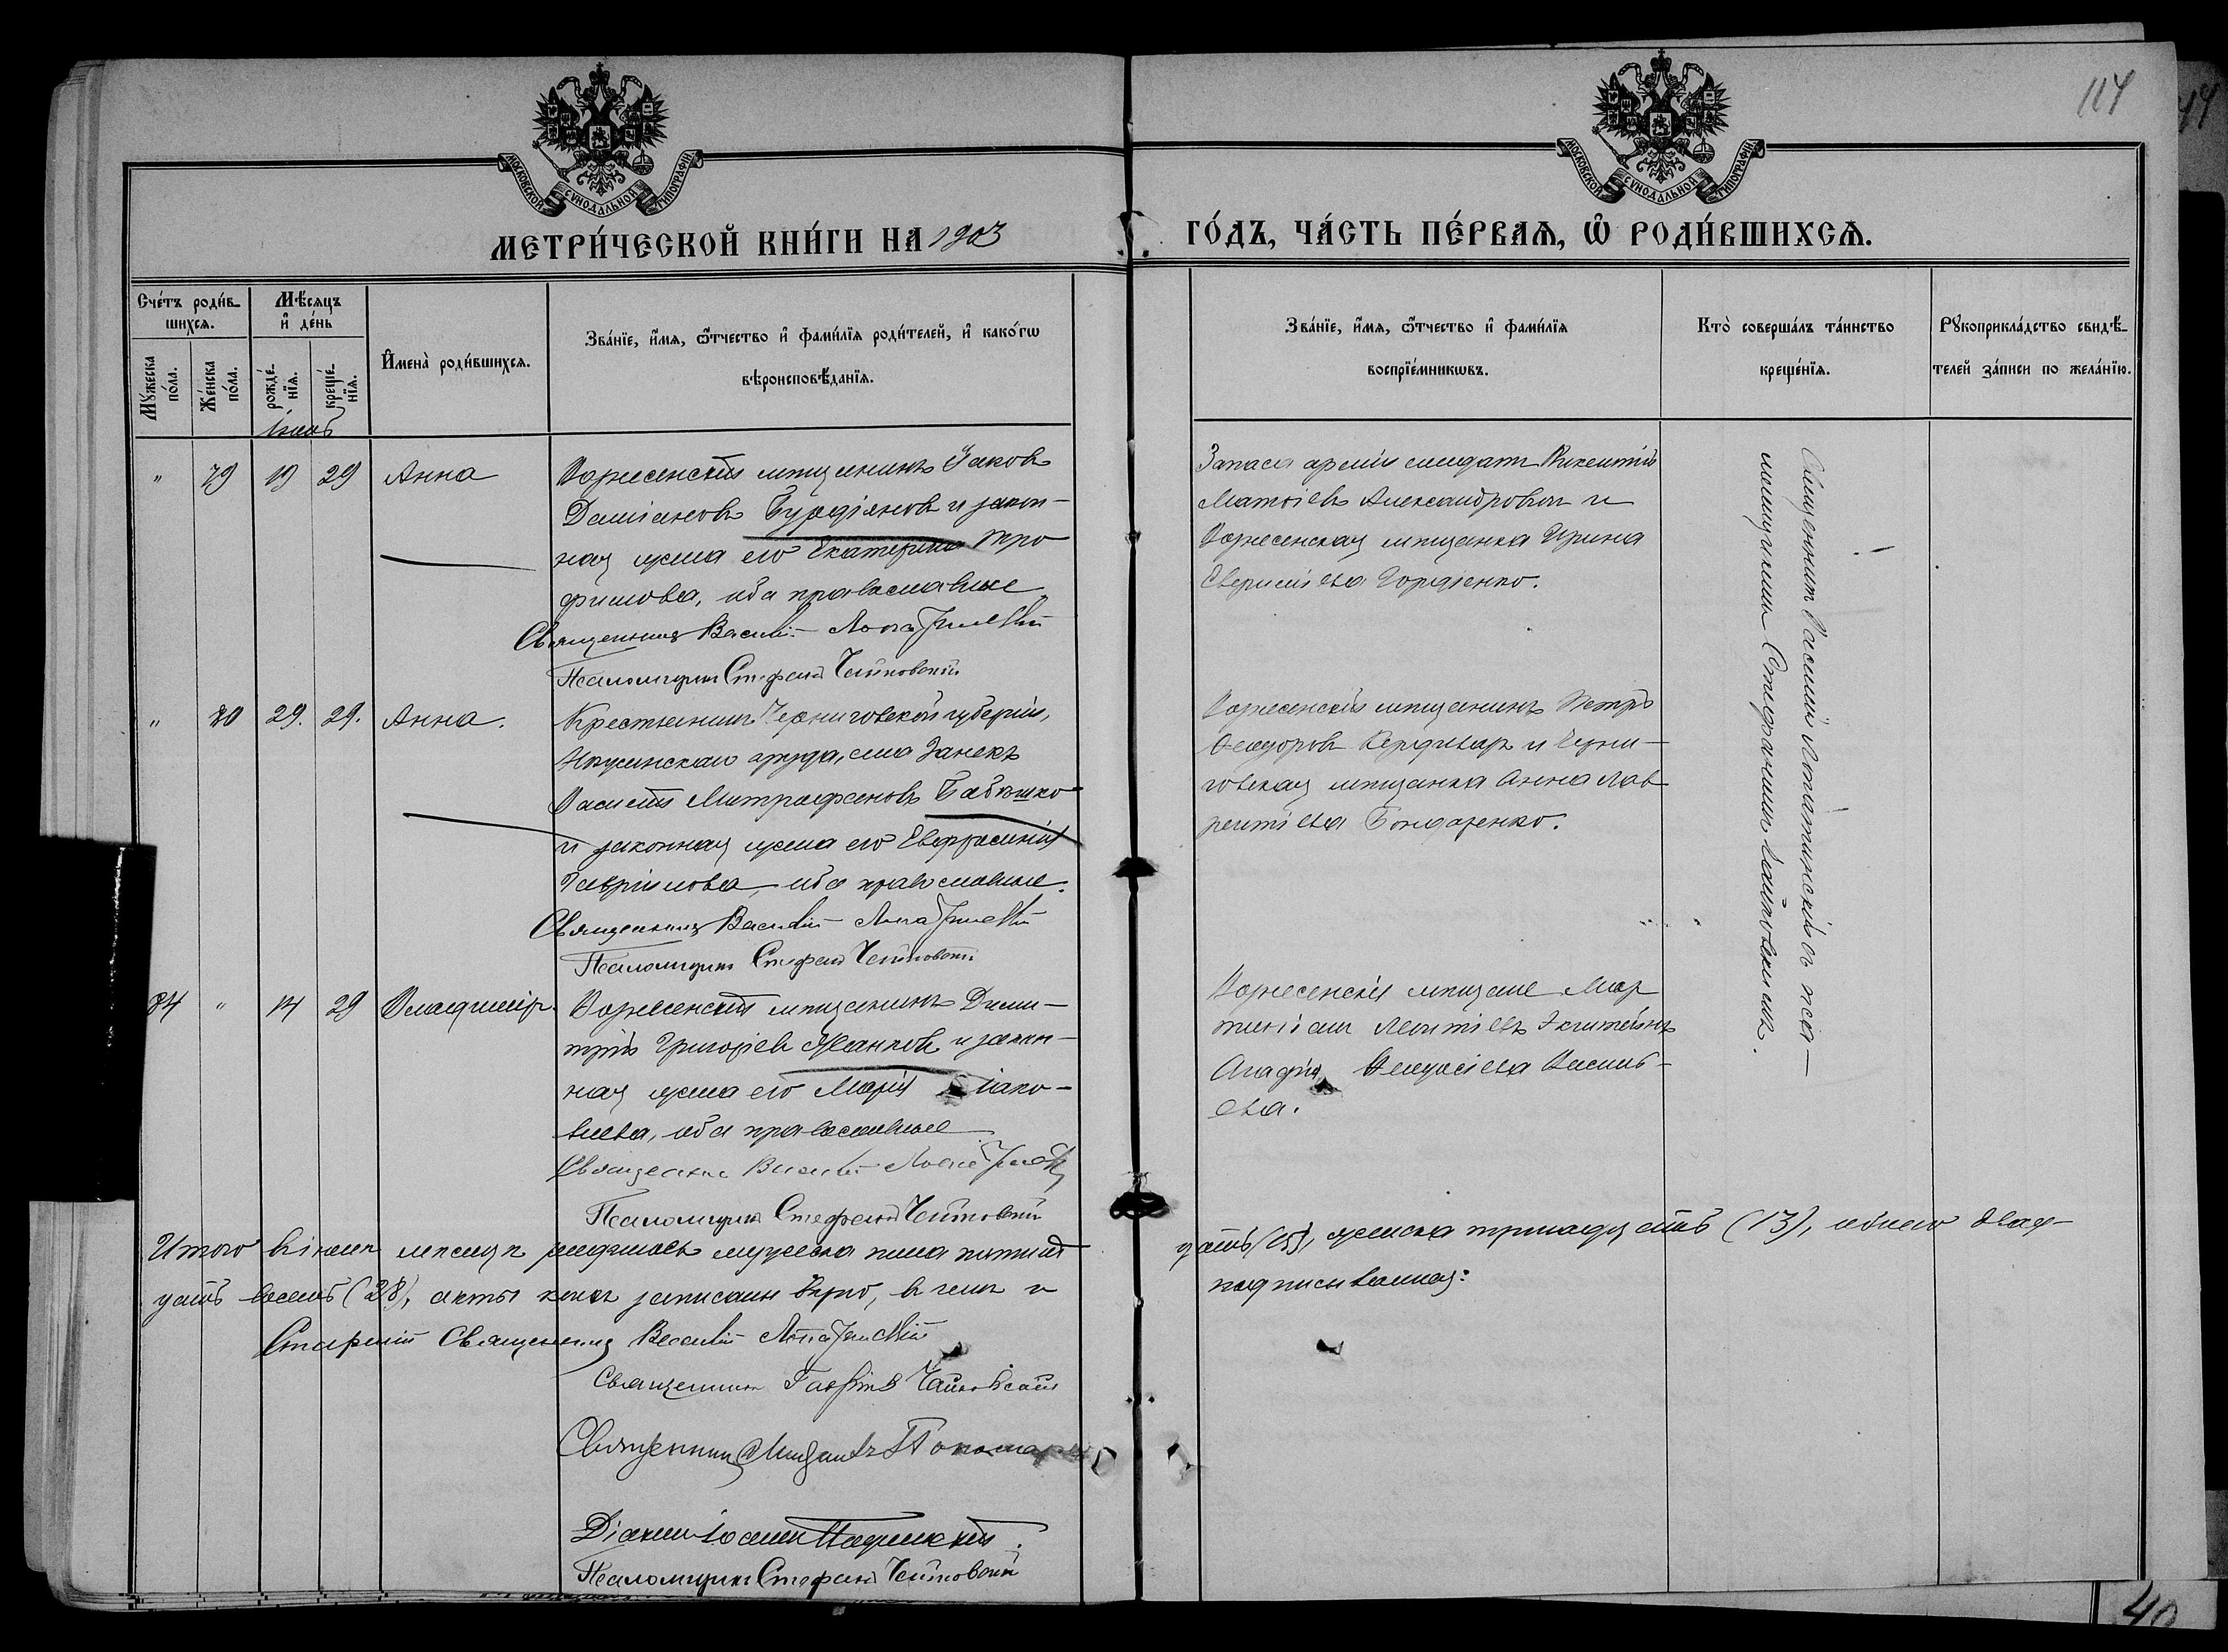 114
МОСКОВСКОЙ СУНОДАЛЬНОЙ ТИПОГРАФІИ
МОСКОВСКОЙ СУНОДАЛЬНОЙ ТИПОГРАФІИ
МЕТРИ́ЧЕСКОЙ КНИ́ГИ НА 1903
ГО́ДЪ, ЧА́СТЬ ПЕ́РВАЯ, Ѡ҆ РОДИ́ВШИХСЯ.
Сче́тъ роди́в-
шихся.
Мѣ́сяцъ
и҆ де́нь
Мꙋ́жеска по́ла.
Же́нска по́ла.
рожде́-
нїя.
креще́-
нїя.
И҆мена̀ роди́вшихся.
Зва́нїе, и҆́мя, ѻ҆́тчество и҆ фами́лїя роди́телей, и҆ како́гѡ
вѣроисповѣ́данїя.
Зва́нїе, и҆́мя, ѻ҆́тчество и҆ фами́лїя
воспрїе́мникѡвъ.
Кто̀ соверша́лъ та́инство
креще́нїя.
Рꙋкоприкла́дство свидѣ́-
телей за́писи по жела́нїю.
Іюнь
" 79 19 29 Анна
Вознесенскій мѣщанинъ Іаковъ
Даміановъ и закон-
ная жена его Екатерина Тро
фимова, оба православные
Священникъ Василій Лопатинскій
Псаломщикъ Стефанъ Чайковскій
Запаса арміи солдатъ Викентій
Матвіевъ Александровичъ и
Вознесенская мѣщанка Ирина
Гордіенко.
Священникъ Василій Лопатинскій съ пса-
ломщикомъ Стефаномъ Чайковскимъ.
" 80 29. 29. Анна.
Крестьянинъ Черниговской губерніи,
уѣзда, села
Василій Митрофановъ Бабешко
и законная жена его Евфросинія
Гавріилова, оба православные.
Священникъ Василій Лопатинскій
Псаломщикъ Стефанъ Чайковскій
Вознесенскій мѣщанинъ Петръ
Ѳеодоровъ и Черни-
говская мѣщанка Анна Лав
рентіева Бондаренко.
84 " 14 29 Владиміръ.
Вознесенскій мѣщанинъ Дими-
трій Григоріевъ Жанковъ и закон-
ная жена его Марія Іако-
влева, оба православные
Священникъ Василій Лопатинскій
Псаломщикъ Стефанъ Чайковскій
Вознесенскіе мѣщане Мар
тиніанъ Леонтіевъ
Агафія Ѳеодосіева Василь-
ева.
Итого въ іюнѣ мѣсяцѣ родилось мужеска пола пятнад
цать (15), женска тринадцать (13), обоего двад-
цать восемь (28), акты коихъ записаны вѣрно, въ чемъ и
подписываемся:
Старшій Священникъ Василій Лопатинскій
Священникъ Гавріилъ Чайковскій
Священникъ Михаилъ
Діаконъ Іоаннъ
Псаломщикъ Стефанъ Чайковскій
40